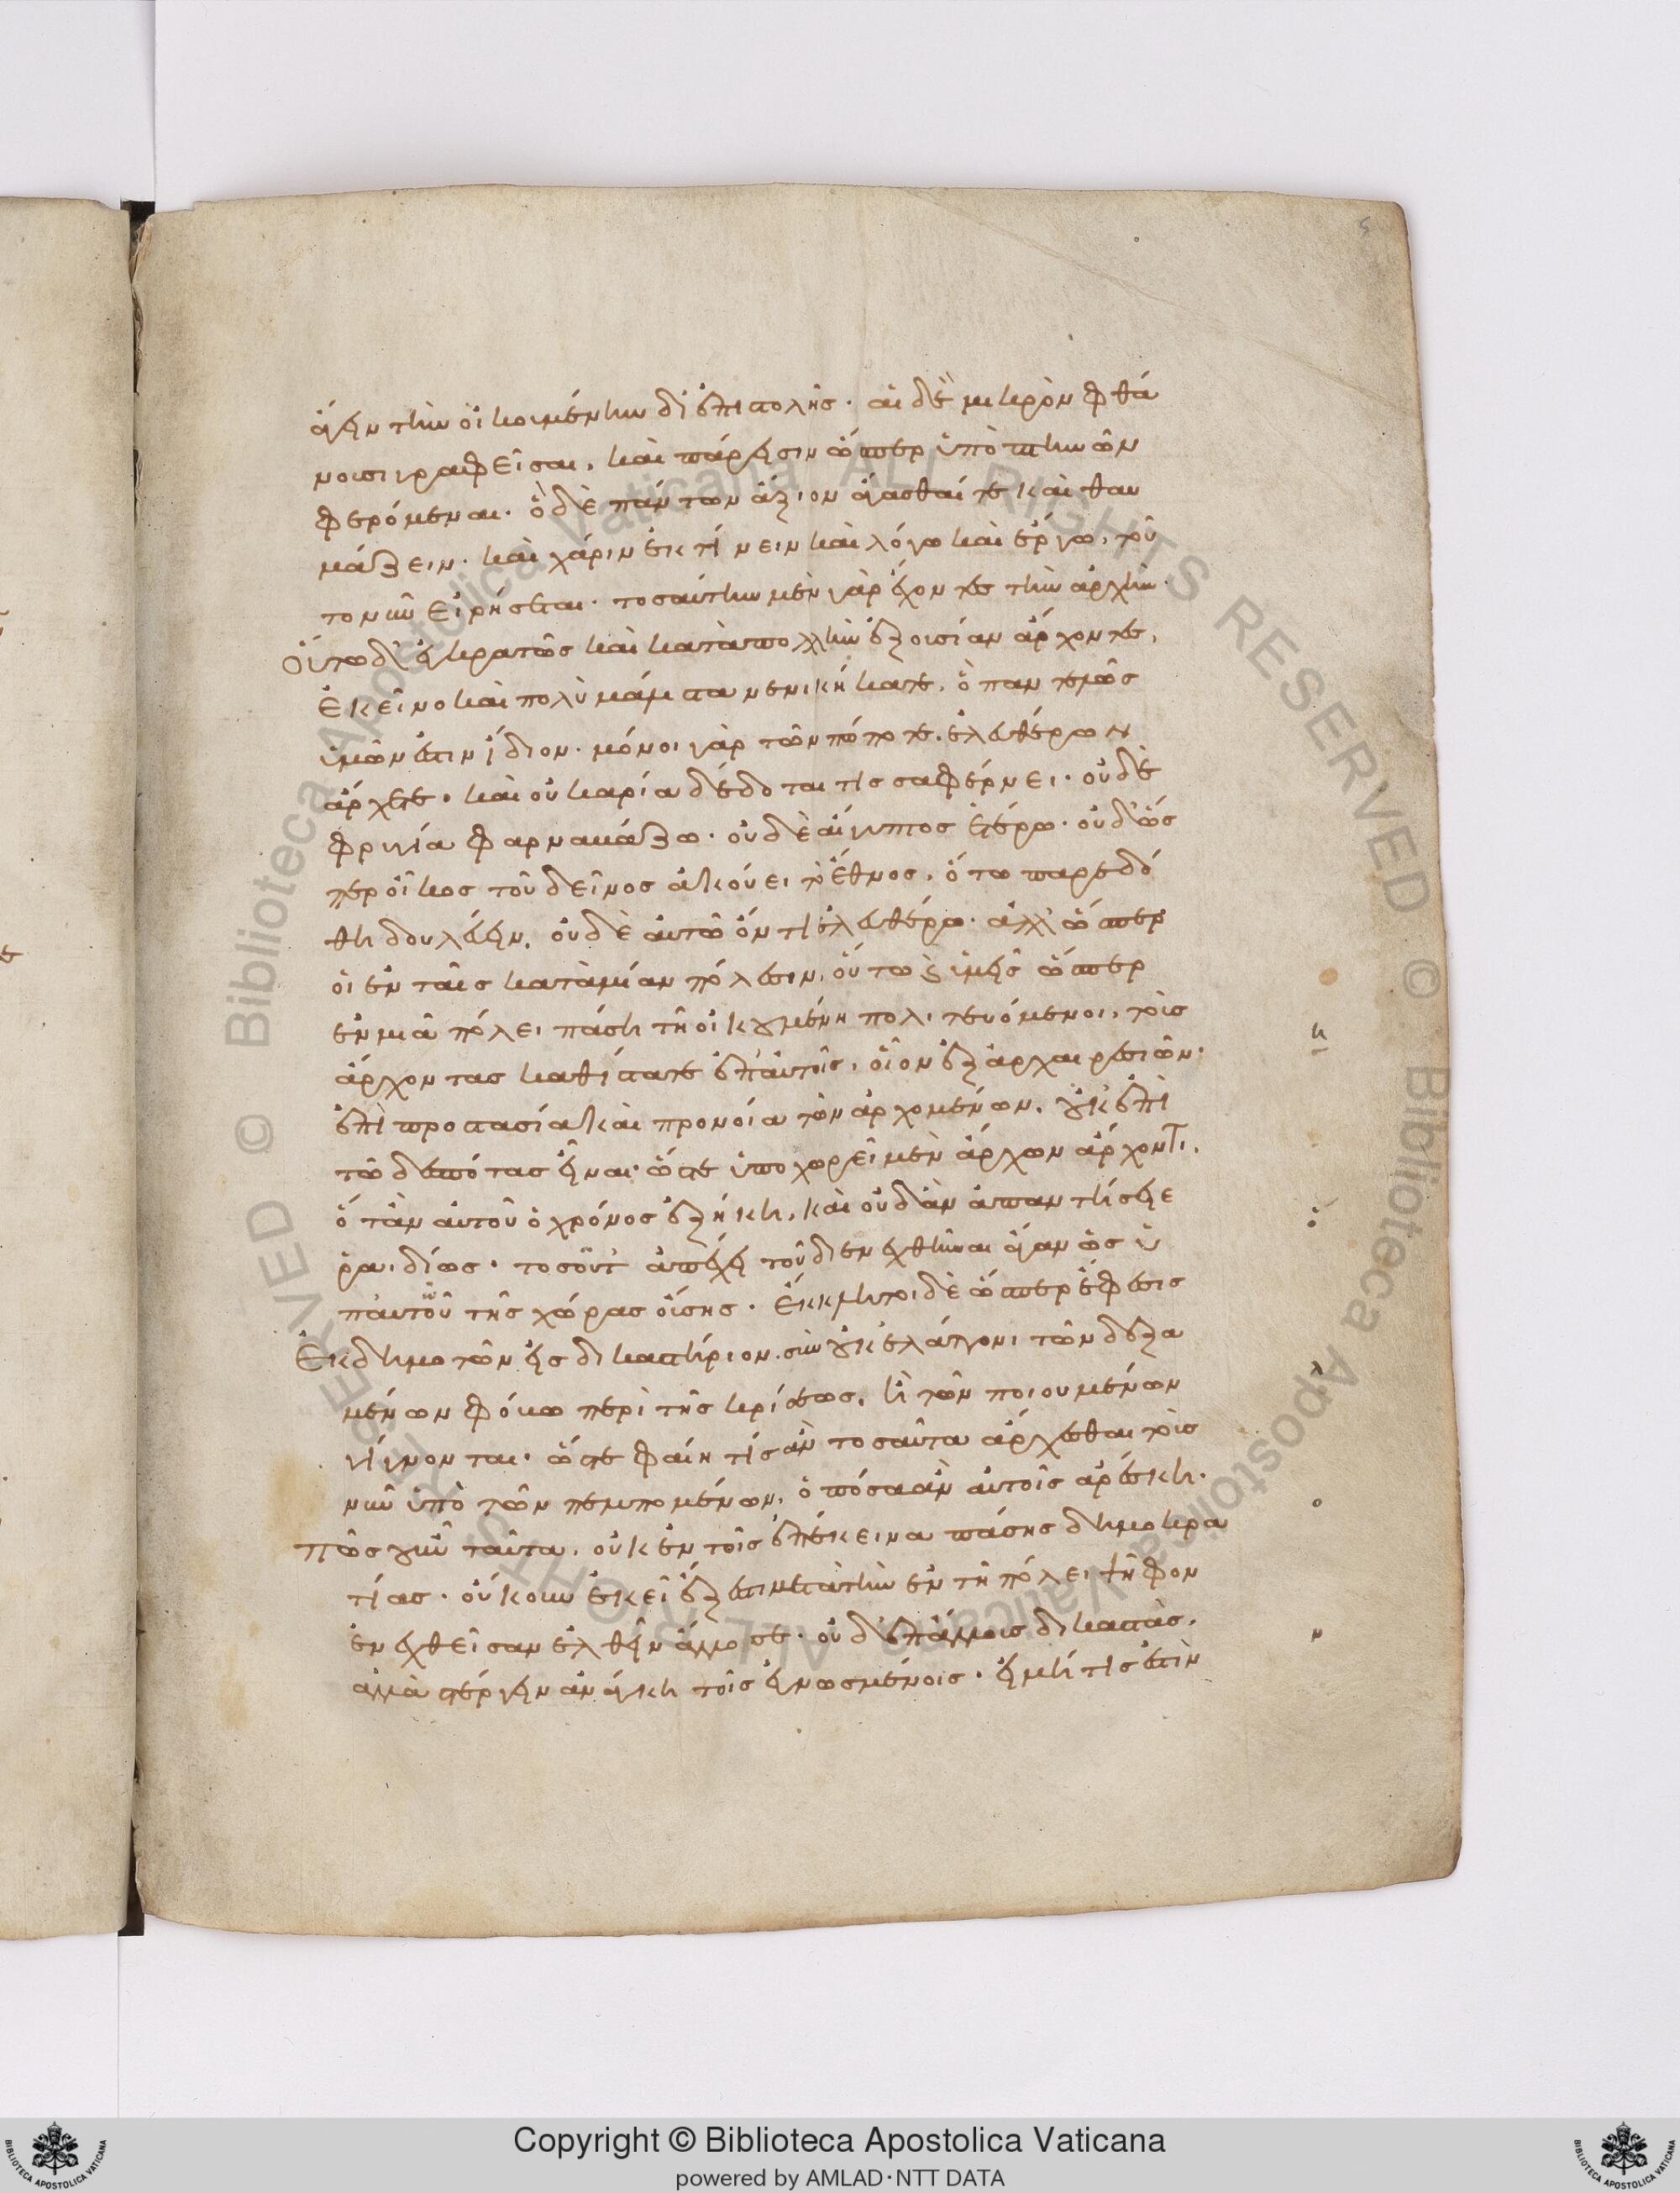 ἄγειν τὴν οἰκουμένην δι' ἐπιστολῆς. αἱ δὲ μικρὸν φθά
νουσι γραφεῖσαι, καὶ πάρεισιν ὥσπερ ὑπὸ πτηνῶν
φερόμεναι. ὃ δὲ πάντων ἄξιον ἄγασθαί τε καὶ θαυ
μάζειν. καὶ χάριν ἐκτίνειν καὶ λόγω καὶ ἔργω, τοῦ
το νῦν εἰρήσεται. τοσαύτην μὲν γὰρ ἔχοντες τὴν ἀρχὴν.
Οὕτω δ' ἐγκρατῶς καὶ κατὰ πολλὴν ἐξουσίαν ἄρχοντες,
ἐκεῖνο καὶ πολὺ μάλιστα νενικήκατε, ὃ παντελῶς
ὑμῶν ἐστιν ἴδιον. μόνοι γὰρ τῶν πώποτε, ἐλευθέρων
ἄρχετε. καὶ οὐ καρία δέδοται τισσαφέρνει. οὐδὲ
φρυγία φαρναβάζω. οὐδὲ αἴγυπτος ἑτέρω. οὐδ' ὥσ
περ οἶκος τοῦ δεῖνος ἀκούει τὸ ἔθνος, ὅτω παρεδό
θη δουλεύειν, οὐδὲ αὐτῶ ὄντι ἐλευθέρω. ἀλλ' ὥσπερ
οἱ ἐν ταῖς κατὰ μίαν πόλεσιν, οὕτω καὶ ὑμεῖς ὥσπερ
ἐν μιᾶ πόλει πάση τῆ οἰκουμένη πολιτευόμενοι, τοὺς
ἄρχοντας καθίστατε ἐπ' αὐτοῖς, οἷον ἐξ ἀρχαιρεσιῶν.
ἐπὶ προστασία καὶ προνοία τῶν ἀρχομένων, οὐκ ἐπὶ
τῶ δεσπότας εἶναι. ὥστε ὑποχωρεῖ μὲν ἄρχων ἄρχοντι,
ὅταν αὐτοῦ ὁ χρόνος ἐξήκη, καὶ οὐδ' ἂν ἀπαντήσειε
ῥαιδίως. τοσοῦτ' ἀπέχει τοῦ διενεχθῆναι ἄγαν ὡς ὑ
π' αὐτοῦ τῆς χώρας οὔσης. ἔκκλητοι δὲ ὥσπερ ἔφεσις
Ἐκ δημοτῶν εἰς δικαστήριον. σὺν οὐκ ἐλάττονι τῶν δεξα
μένων φόβω περὶ τῆς κρίσεως, ἢ τῶν ποιουμένων
γίγνονται. ὥστε φαίη τὶς ἂν τοσαῦτα ἄρχεσθαι τοὺς
νῦν ὑπὸ τῶν πεμπομένων, ὁπόσα ἂν αὐτοῖς ἀρέσκη.
πῶς οὖν ταῦτα, οὐκ ἐν τοῖς ἐπέκεινα πάσης δημοκρα
τίας. οὔκουν ἐκεῖ ἔξεστι μετὰ τὴν ἐν τῆ πόλει ψῆφον
ἐνεχθεῖσαν ἐλθεῖν ἄλλοσε. οὐδ' ἐπ' ἄλλους δικαστὰς,
ἀλλὰ στέργειν ἀνάγκη τοῖς ἐγνωσμένοις. εἰ μή τίς ἐστὶν